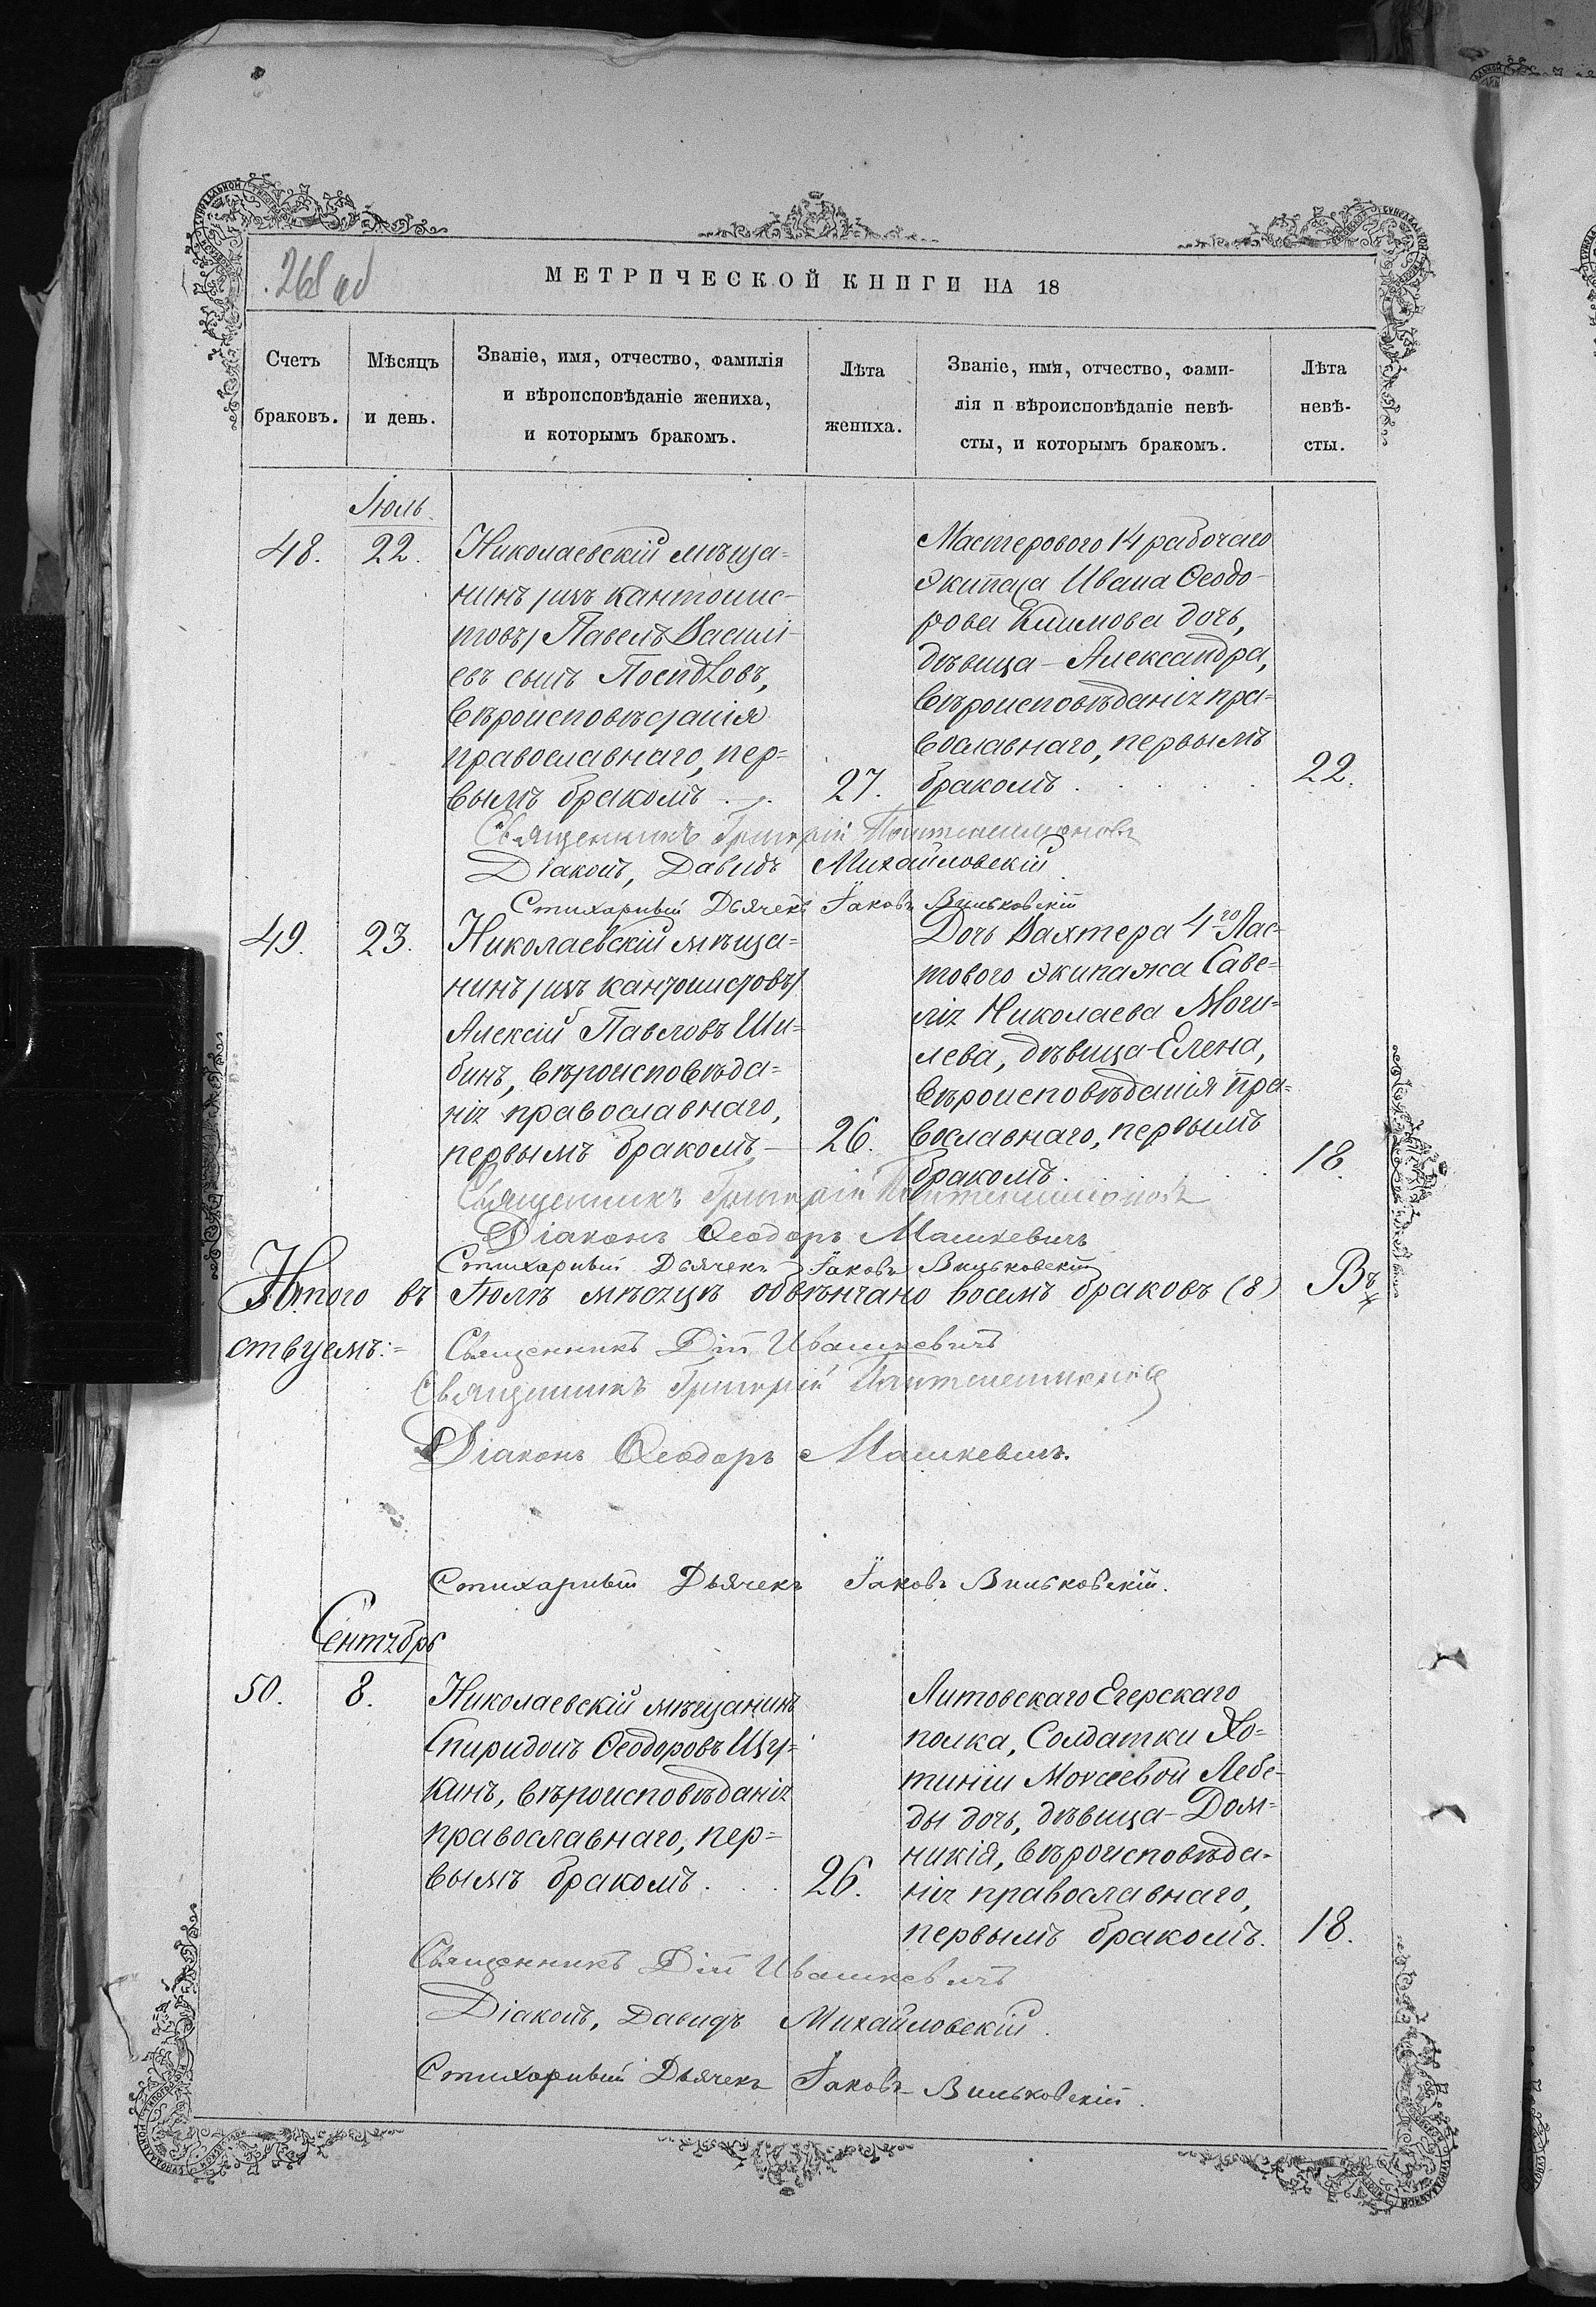 268 об
МЕТРИЧЕСКОЙ КНИГИ НА 18
Счетъ браковъ.
Мѣсяцъ и день.
Званіе, имя, отчество, фамилія
и вѣроисповѣданіе жениха,
и которымъ бракомъ.
Лѣта
жениха.
Званіе, имя, отчество, фами-
лія и вѣроисповѣданіе невѣ-
сты, и которымъ бракомъ.
Лѣта
невѣ-
сты.
Іюль
48. 22.
Николаевскій мѣща=
нинъ /изъ кантонис-
товъ/ Павелъ Василі-
евъ сынъ
вѣроисповѣданія
православнаго, пер=
вымъ бракомъ
27.
Мастерового 14 рабочаго
экипажа Ивана Ѳеодо-
рова Климова дочь,
дѣвица - Александра,
вѣроисповѣданія пра=
вославнаго, первымъ
бракомъ
22.
Священникъ Григорій
Діаконъ, Давидъ Михайловскій
Стихарный Дьячекъ Іаковъ Вильковскій
49. 23.
Николаевскій мѣща=
нинъ /изъ кантонистовъ/
Алексій Павловъ Ши=
бинъ, вѣроисповѣда=
нія православнаго,
первымъ бракомъ
26.
Дочь Вахтера 4го Лас-
тового экипажа Саве=
лія Николаева Моги=
лева, дѣвица - Елена,
вѣроисповѣданія пра=
вославнаго, первымъ
бракомъ
18.
Священникъ Григорій
Діаконъ Ѳеодоръ Машкевичъ
Стихарный Дьячекъ Іаковъ Вильковскій
Итого въ Іюлѣ мѣсяцѣ обвѣнчано восемь браковъ (8)
ствуемъ:=
Священникъ Дім Ивашкевичъ
Священникъ Григорій
Діаконъ Ѳеодоръ Машкевичъ.
Стихарный Дьячекъ Іаковъ Вильковскій.
Сентябрь
50. 8.
Николаевскій мѣщанинъ
Спиридонъ Ѳеодоровъ Щу=
кинъ, вѣроисповѣданія
православнаго, пер=
вымъ бракомъ
26.
Литовскаго Егерскаго
полка, Солдатки Хо=
тиніи Моисеевой Лебе-
ды дочь, дѣвица - Дом=
никія, вѣроисповѣда-
нія православнаго,
первымъ бракомъ.
18.
Священникъ Дім Ивашкевичъ
Діаконъ, Давидъ Михайловскій.
Стихарный Дьячекъ Іаковъ Вильковскій.